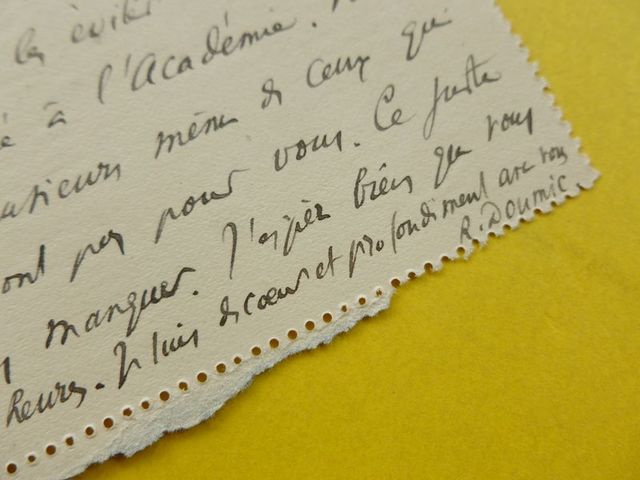 les éviter
à l'Académie.
plusieurs même de ceux qui
ont pas pour vous. Ce juste
manquer. J'espère bien que vous
heures. Je suis de cœur et profondément avec vous
R. Doumic